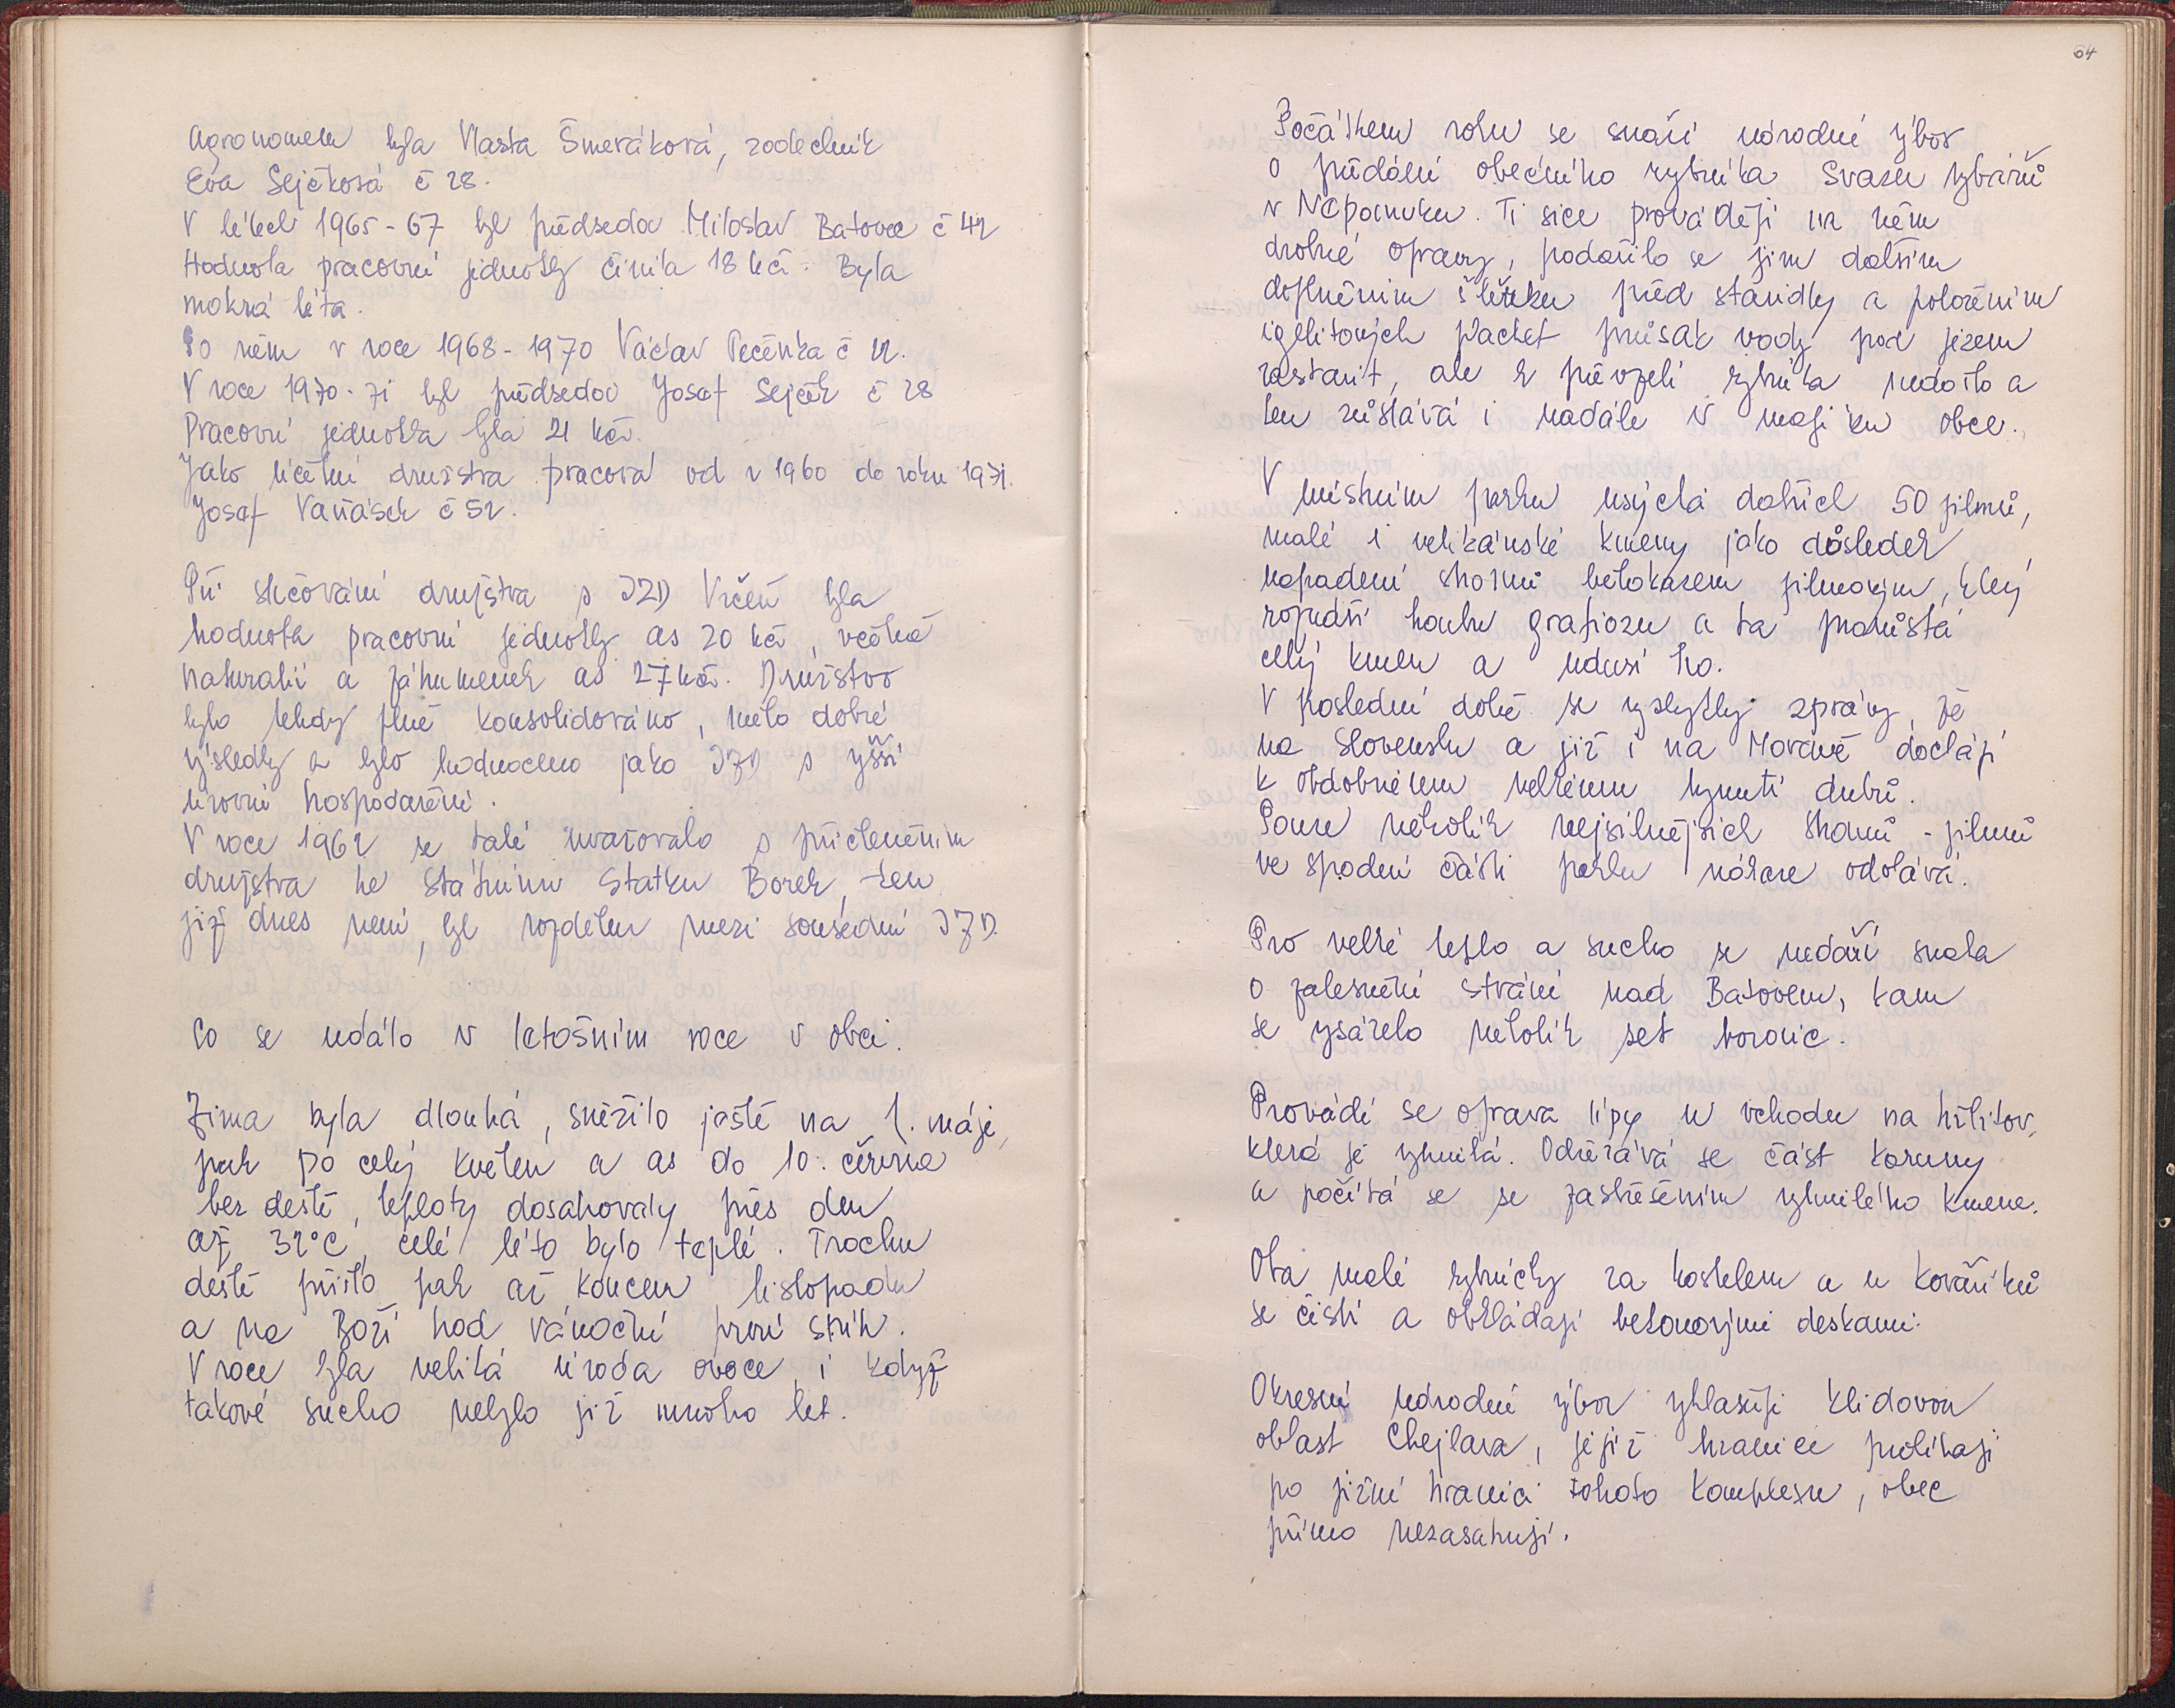 Agronomem byla Vlasta Šmeráková, zootechnik
Eva Sejčková č 28.
V létech 1965-67 byl předsedou Miloslav Batovec č 42
Hodnota pracovní jednotky činila 18 kčs. Byla
mokrá léta.
Po něm v roce 1968-1970 Václav Pečenka č 12.
V roce 1970-71 byl předsedou Josef Sejček č 28
Pracovní jednotka byla 21 kčs.
Jako účetní družstva pracoval od r 1960 do roku 1971.
Josef Vaňásek č 52.
Při slučování družstva s JZD Vrčeň byla
hodnota pracovní jednotky as 20 kčs, včetně
naturalií a záhumenek as 27 kčs. Družstvo
bylo tehdy plně konsolidováno, mělo dobré
výsledky a bylo hodnoceno jako JZD s vyšší
úrovní hospodaření.
V roce 1962 se také uvažovalo s přičleněním
družstva ke Státnímu statku Borek, ten
již dnes není, byl rozdělen mezi sousední JZD.
Co se událo v letošním roce v obci.
Zima byla dlouhá, sněžilo ještě na 1. máje,
pak po celý květen a as do 10. června
bez deště, teploty dosahovaly přes den
až 32°C, celé léto bylo teplé. Trochu
deště přišlo pak až koncem listopadu
a na Boží hod vánoční první sníh.
V roce byla veliká úroda ovoce, i když
takové sucho nebylo již mnoho let.
64
Počátkem roku se snaží národní výbor
o předání obecního rybníka Svazu rybářů
v Nepomuku. Ti sice provádějí na něm
drobné opravy, podařilo se jim dalším
doplněním štěrku před stavidly a položením
igelitových plachet průsak vody pod jezem
zastavit, ale k převzetí rybníka nedošlo a
ten zůstává i nadále v majíku obce.
V místním parku usychá dalších 50 jilmů,
malé i velikánské kmeny jako důsledek
napadení stromů bělokazem jilmovým, který
roznáší houbu grafiozu a ta prorůstá
celý kmen a udusí ho.
V poslední době se vyskytly zprávy, že
na Slovensku a již i na Moravě dochází
k obdobnému velkému hynutí dubů.
Pouze několik nejsilnějších stromů - jilmů
ve spodní části parku nákaze odolává.
Pro velké teplo a sucho se nedaří snaha
o zalesnění strání nad Batovem, kam
se vysázelo několik set borovic.
Provádí se oprava lípy u vchodu na hřbitov,
která je vyhnilá. Odřezává se část koruny
a počítá se se zastřešením vyhnilého kmene.
Oba malé rybníčky za kostelem a u Kovaříků
se čistí a obkládají betonovými deskami.
Okresní národní výbor vyhlašuje klidovou
oblast Chejlava, jejíž hranice probíhají
po jižní hranici tohoto komplexu, obec
přímo nezasahují.